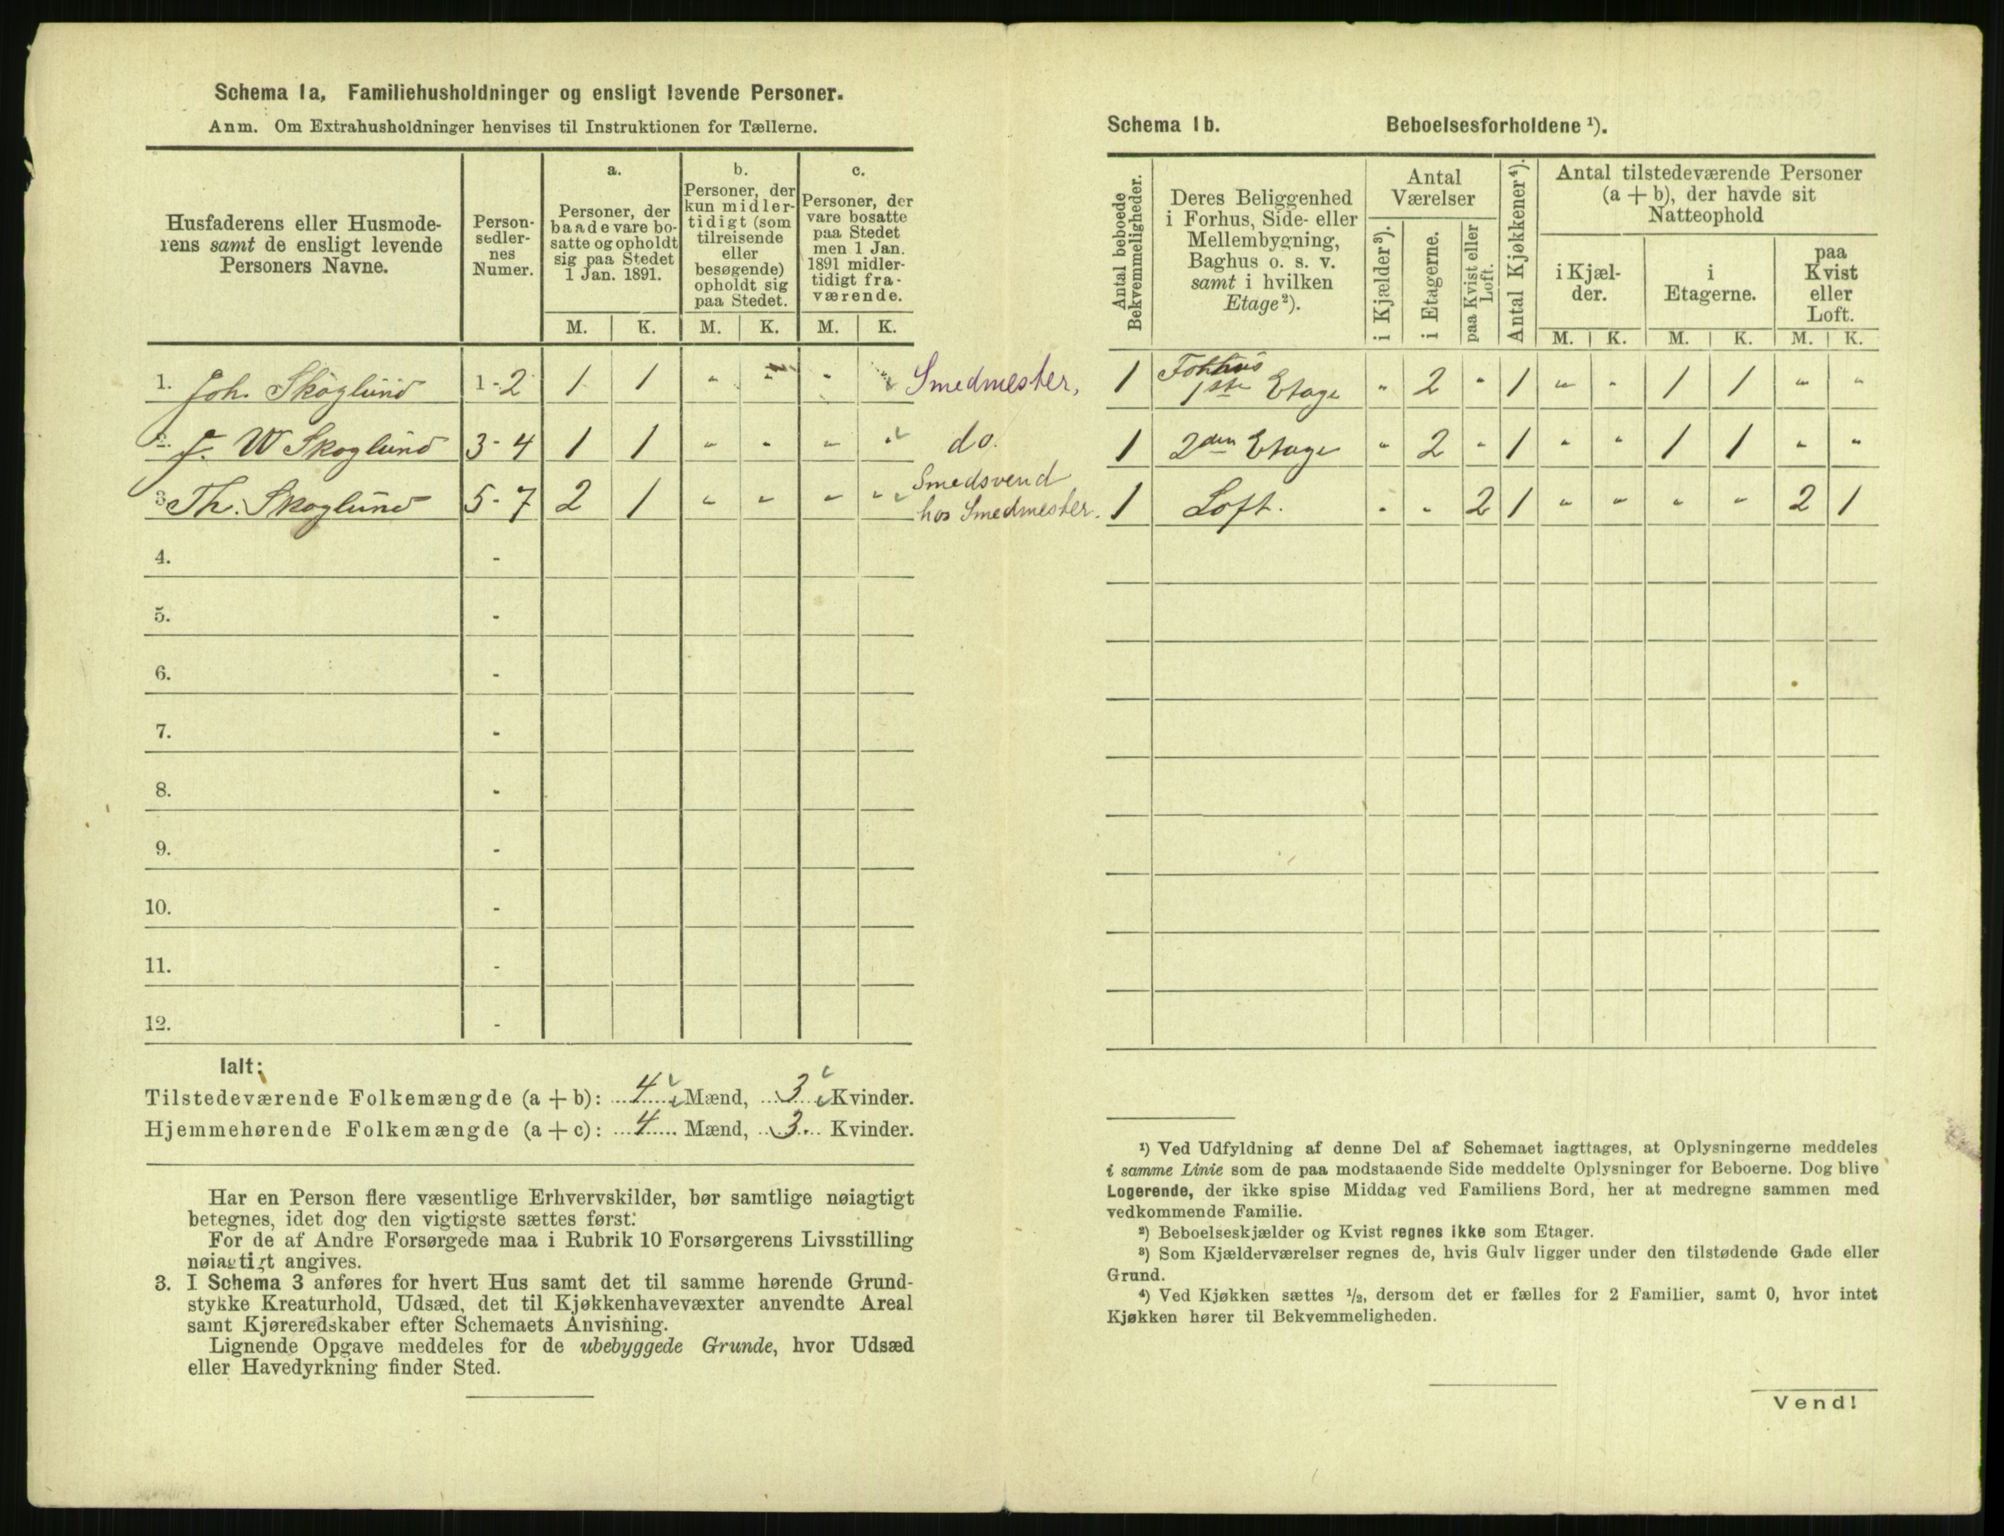 Schema 1a, Familiehusholdninger og ensligt levende Personer.
Anm. Om Extrahusholdninger henvises til Instruktionen for Tællerne.
Husfaderens eller Husmode-
rens samt de ensligt levende
Personers Navne.
Person-
sedler-
nes
Numer.
a.
Personer, der
baade vare bo-
satte og opholdt
sig paa Stedet
1 Jan. 1891.
b.
Personer, der
kun midler-
tidigt (som
tilreisende
eller
besøgende)
opholdt sig
paa Stedet.
c.
Personer, der
vare bosatte
paa Stedet
men 1 Jan.
1891 midler-
tidigt fra-
værende.
M. K. M. K. M. K.
1. Joh. Skoglund 1 - 2 1 1 " " " " Smedmester,
2. J. W Skoglund 3 - 4 1 1 " " " " do.
3 Th. Skoglund 5 - 7 2 1 " " " " Smedsvend
hos Smedmester.
4. -
5. -
6. -
7. -
8. -
9. -
10. -
11. -
12. -
Ialt:
Tilstedeværende Folkemængde (a + b): 4 Mænd, 3 Kvinder.
Hjemmehørende Folkemængde (a + c): 4 Mænd, 3 Kvinder.
Har en Person flere væsentlige Erhvervskilder, bør samtlige nøiagtigt
betegnes, idet dog den vigtigste sættes først.
For de af Andre Forsørgede maa i Rubrik 10 Forsørgerens Livsstilling
nøiagtigt angives.
3. I Schema 3 anføres for hvert Hus samt det til samme hørende Grund-
stykke Kreaturhold, Udsæd, det til Kjøkkenhavevæxter anvendte Areal
samt Kjøreredskaber efter Schemaets Anvisning.
Lignende Opgave meddeles for de ubebyggede Grunde, hvor Udsæd
eller Havedyrkning finder Sted.
Schema 1b. Beboelsesforholdene ¹).
Antal beboede
Bekvemmeligheder.
Deres Beliggenhed
i Forhus, Side- eller
Mellembygning,
Baghus o. s. v.
samt i hvilken
Etage²).
Antal
Værelser
i Kjælder³).
i Etagerne.
paa Kvist eller
Loft.
Antal Kjøkkener⁴).
Antal tilstedeværende Personer
(a + b), der havde sit
Natteophold
i Kjæl-
der.
i
Etagerne.
paa
Kvist
eller
Loft.
M. K. M. K. M. K.
1 Forhus
1ste Etage " 2 " 1 " " 1 1 " "
1 2den Etage " 2 " 1 " " 1 1 " "
1 Loft. " " 2 1 " " " " 2 1
¹) Ved Udfyldning af denne Del af Schemaet iagttages, at Oplysningerne meddeles
i samme Linie som de paa modstaaende Side meddelte Oplysninger for Beboerne. Dog blive
Logerende, der ikke spise Middag ved Familiens Bord, her at medregne sammen med
vedkommende Familie.
²) Beboelseskjælder og Kvist regnes ikke som Etager.
³) Som Kjælderværelser regnes de, hvis Gulv ligger under den tilstødende Gade eller
Grund.
⁴) Ved Kjøkken sættes ½, dersom det er fælles for 2 Familier, samt 0, hvor intet
Kjøkken hører til Bekvemmeligheden.
Vend!